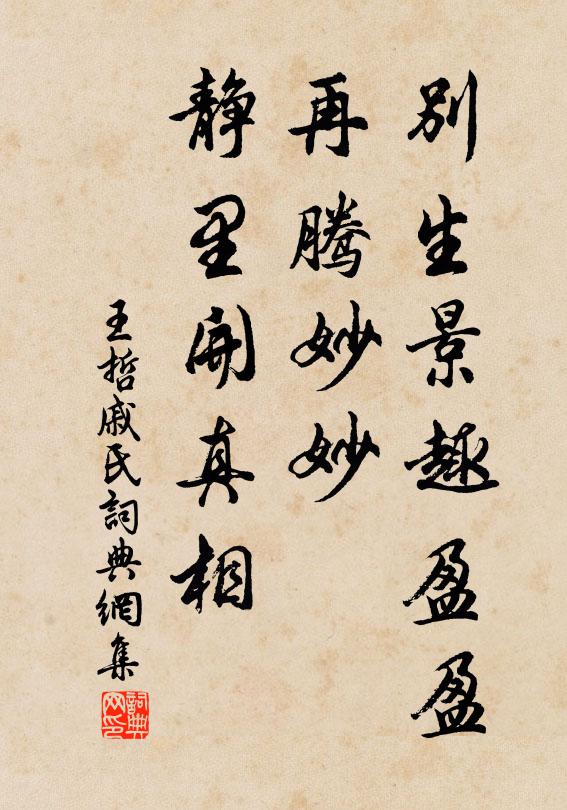 别生景趣盈盈
再腾妙妙
静里开真相
王哲戚氏詞典網集
詞典网印